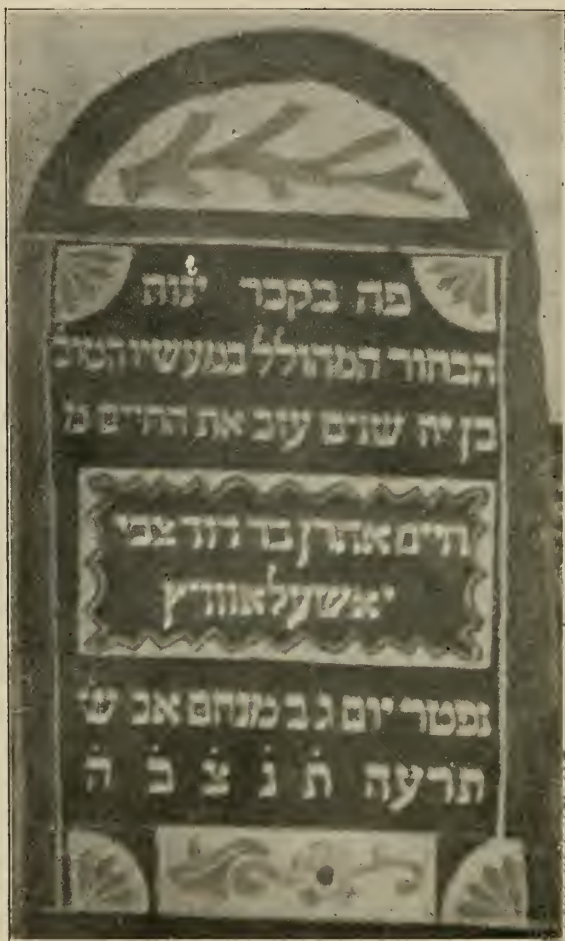 פה בקבר ינוח
הבחור המהולל במעשיו הטוב
בן יה שנים עזב את החיים מ
חיים אהרן בר דוד צבי
יאשעלאוויץ
נפטר יום ג ב מנחם אב ש
תרעה ת נ צ ב ה